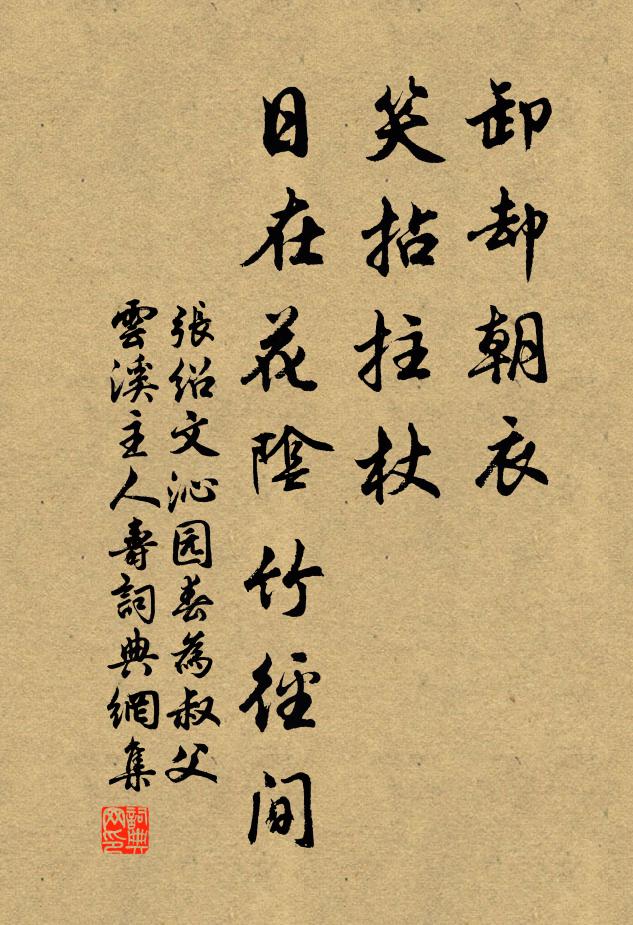 卸却朝衣
笑拈拄杖
日在花陰竹徑间
張紹文沁园春為叔父
雲溪主人壽詞典網集
詞典网印